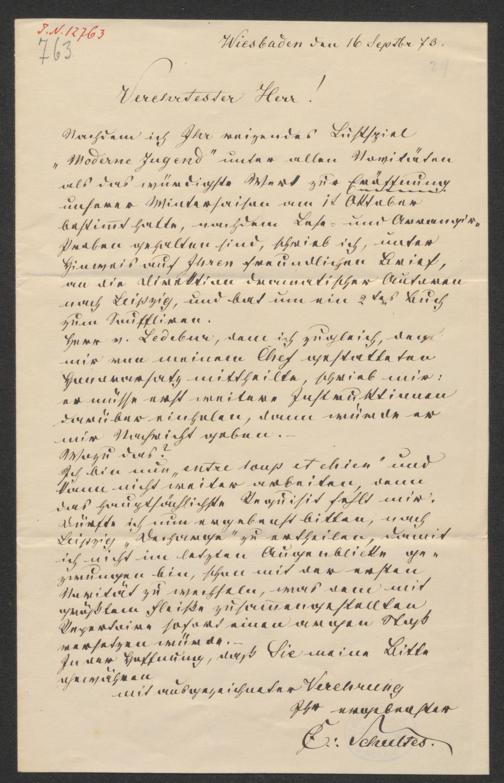 I.N. 12763
763
Wiesbaden den 16 Septbr 73.
24
Verehrtester Herr!
Nachdem ich Ihr reizendes Lustspiel
„Moderne Jugend" unter allen Novitäten
als das würdigste Werk zur Eröffnung
unserer Wintersaison am 1t Oktober
bestimmt hatte, nachdem Lese- und Arrangir-
Proben gehalten sind, schrieb ich, unter
Hinweis auf Ihren freundlichen Brief,
an die Direktion dramatischer Autoren
nach Leipzig, und bat um ein 2tes Buch
zum Souffliren.
Herr v. Ledebur, dem ich zugleich, den
mir von meinem Chef gestatteten
Honorarsatz mittheilte, schrieb mir:
er müsse erst weitere Instruktionen
darüber einholen, dann würde er
mir Nachricht geben. —
Wozu das?
Ich bin nun „entre loup et chien" und
kann nicht weiter arbeiten, denn
das hauptsächlichste Requisit fehlt mir.
Dürfte ich nun ergebenst bitten, nach
Leipzig „Decharge" zu ertheilen, damit
ich nicht im letzten Augenblicke ge-
zwungen bin, schon mit der ersten
Novität zu wechseln, was dem mit
größtem Fleiße zusammengestellten
Repertoire sofort einen argen Stoß
versetzen würde. —
In der Hoffnung, daß Sie meine Bitte
gewähren
mit ausgezeichneter Verehrung
Ihr ergebenster
C. Schultes.